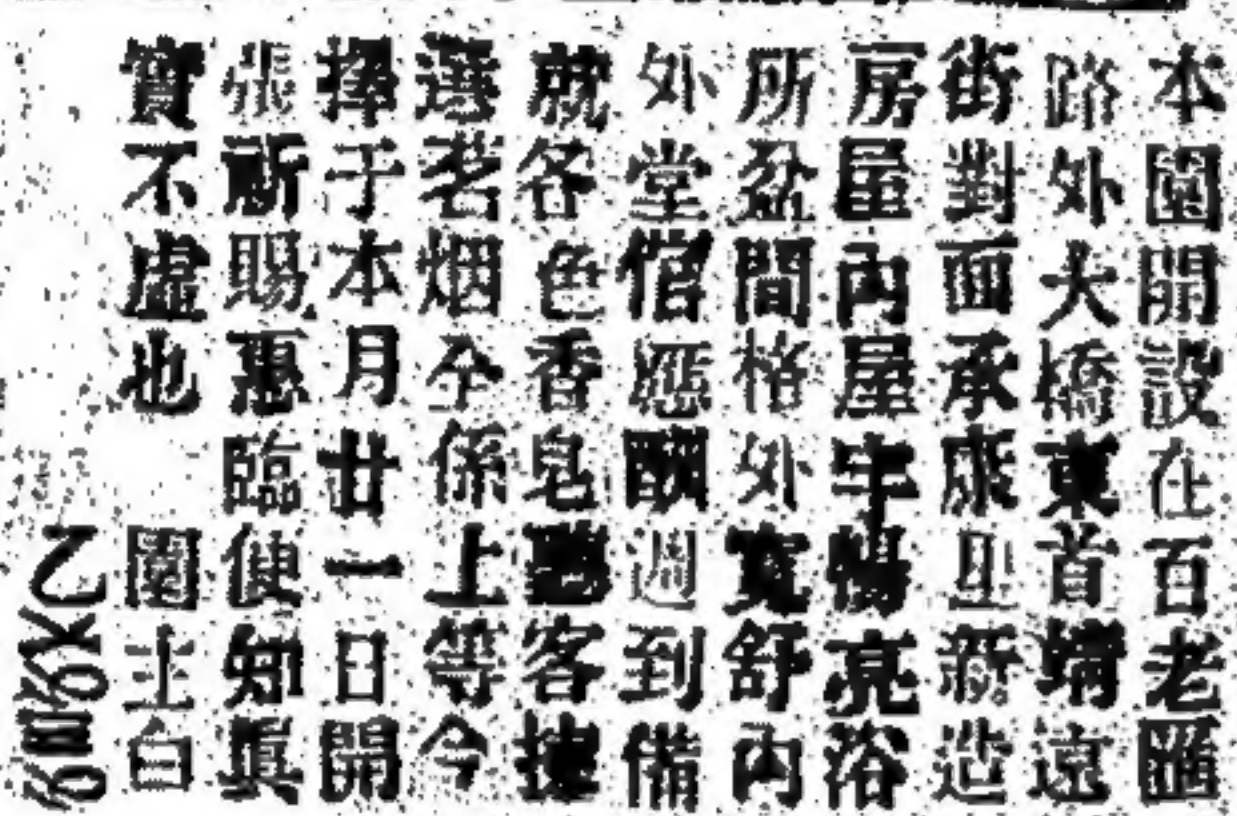 本園開設在百老匯
路外大橋東首靖遠
街對面承展且新造
房屋內屋宇暢亮浴
所盆間格外寬舒內
外堂倌應酬週到備
就各色香皂聽客揀
選茗烟仝係上等今
擇于本月廿一日開
張祈賜惠臨便知真
實不虛也 園主白